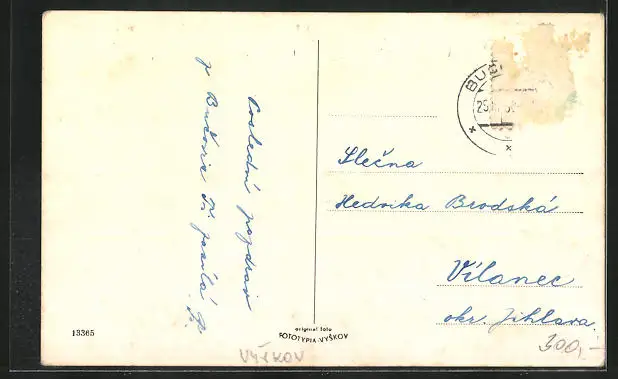 Poslední pozdrav
z Bučovic Ti posílá
BUČ
25.
Slečna
Hedvika Brodská
Vílanec
okr. Jihlava
300,-
13365
original foto
FOTOTYPIA-VYŠKOV
VYŠKOV